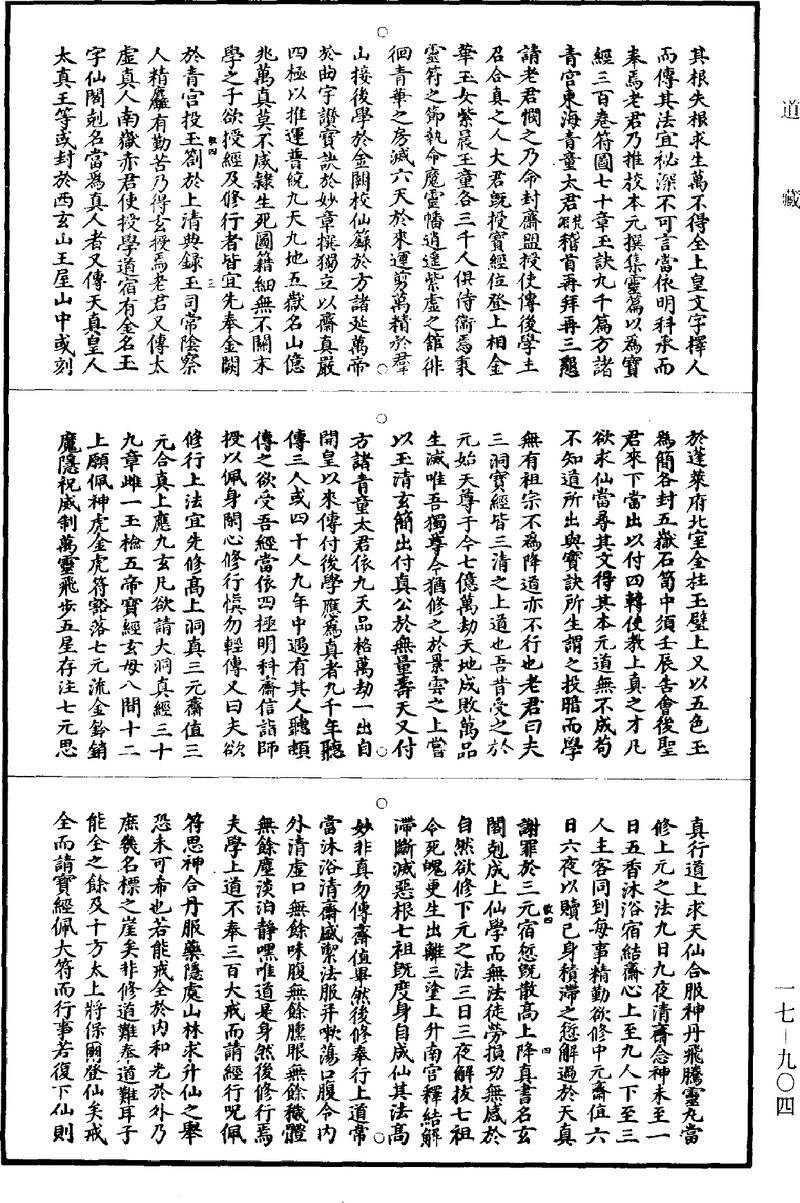 道藏
其根失根求生萬不得全上皇文字擇人
而傳其法宜祕深不可言當依明科承而
奉焉老君乃推校本元撰集靈篇以為寶
經三百卷符圖七十章玉訣九千篇方諸
青宮東海青童大君稽首再拜再三懇
請老君憫之乃命封齋盟授使傳後學土
召合真之人大君既授寶經位登上相金
華玉女紫晨玉童各三千人俱侍衛焉秉
靈符之節執命魔靈幡逍遙紫虛之館徘
徊青華之房滅六天於來運剪萬精於羣
山接後學於金闕校仙籙於方諸延萬帝
於曲宇讚寶訣於妙章撰獨立以齋真嚴
四極以推運普統九天九地五嶽名山億
兆萬真莫不咸隸生死圖籍細無不關末
學之子欲授經及修行者皆宜先奉金闕
於青宮投玉劄於上清典録玉司常陰察
人精麤有勤苦乃得玄授焉老君又傳太
虛真人南嶽赤君使授學道宿有金名玉
字仙閣剋名當為真人者又傳天真皇人
太真王等或封於西玄山王屋山中或刻
於蓬萊府北室金柱玉壁上又以五色玉
為簡各封五嶽石笥中須壬辰吉會後聖
君來下當出以付四轉使教上真之才凡
欲求仙當尋其文得其本元道無不成苟
不知道所出與寶訣所生謂之投腊而學
無有祖宗不為降道亦不行也老君曰夫
三洞寶經皆三清之上道也吾昔受之於
元始天尊于今七億萬劫天地成敗萬品
生滅唯吾獨尊今猶修之於景雲之上嘗
以玉清玄簡出付真公於無量壽天又付
方諸青童大君依九天品格萬劫一出自
開皇以來傳付後學應為真者九千年聽
傳三人或四十人九年中遇有其人聽頓
傳之欲受吾經當依四極明科齋信詣師
授以佩身閉心修行慎勿輕傳又曰夫欲
修行上法宜先修高上洞真三元齋值三
元合真上應九玄凡欲請大洞真經三十
九章雌一玉檢五帝寶經玄母八間十二
上願佩神虎金虎符豁落七元流金鈴銷
魔隱祝威制萬靈飛步五星存注七元思
真行道上求天仙合服神丹飛騰靈丸當
修上元之法九日九夜清齋念神未至一
日五香沐浴宿結齋心上至九人下至三
人主客同到每事精勤欲修中元齋值六
日六夜以贖己身積滯之愆解過於天真
謝罪於三元宿愆既散高上降真書名玄
閣剋成上仙學而無法徒勞損功無感於
自然欲修下元之法三日三夜解拔七祖
令死魄更生出離三塗上升南宮釋結解
滯斷滅惡根七祖既度身自成仙其法高
妙非真勿傳齋值畢然後修奉行上道常
當沐浴清齋盛潔法服并嗽蕩口腹令內
外清虛口無餘味腹無餘臊眼無餘穢體
無餘塵淡泊靜嘿唯道是身然後修行焉
夫學上道不奉三百大戒而請經行呪佩
符思神合丹服藥隱處山林求升仙之舉
恐未可希也若能戒全於內和光於外乃
庶幾名標之崖矣非修道難奉道難耳子
能全之餘及十方太上將保爾登仙矣戒
全而請寶經佩大符而行事若復下仙則
一七—九〇四